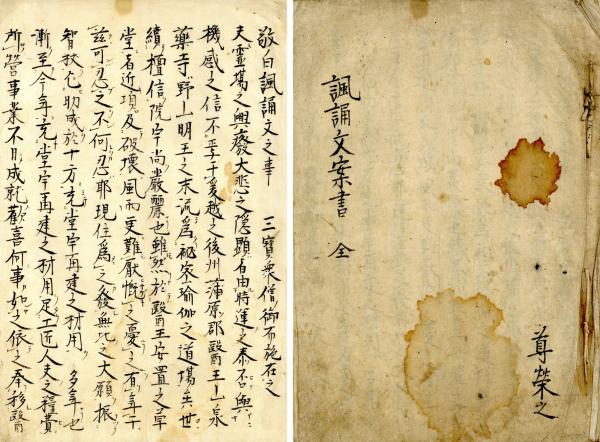 諷誦文案書 全
尊榮之
敬白諷誦文之事 三宝衆僧御布施在之
夫霊場之興癈大悲之隠顕自由時運之泰否與
機感之信不孚于爰越之後州蒲原郡毉王山泉
藥寺野山明王之末流為秘密瑜伽之道場矣世
續檀信院宇尚嚴麗也雖然於毉王安置之草
堂者近項及破壊風雨更難厭慨之憂之有年于
茲可忍之不何忍耶現住為之發無比之大願振
智 乞助成於十方充堂宇再建之材用 多年也
漸至今年充堂宇再建之材用足工近人夫之糧費
所營事業不日成就歡喜何事如之依之奉移毉